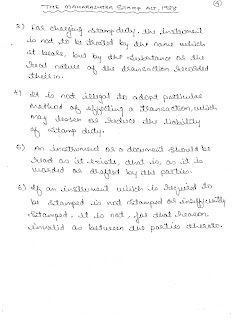 THE MAHARASHTRA STAMP ACT, 1958
3) For charging stamp duty, the instrument
is not to be treated by the name which
it bears, but by the substance or the
real nature of the transaction recorded
therein.
4) It is not illegal to adopt particular
method of effecting a transaction, which
may lessen or reduce the liability
of stamp duty.
5) An instrument or a document should be
read as it exists, that is, as it is
worded or drafted by the parties.
6) If an instrument which is required to
be stamped is not stamped or insufficiently
stamped, it is not, for that reason
invalid as between the parties thereto.